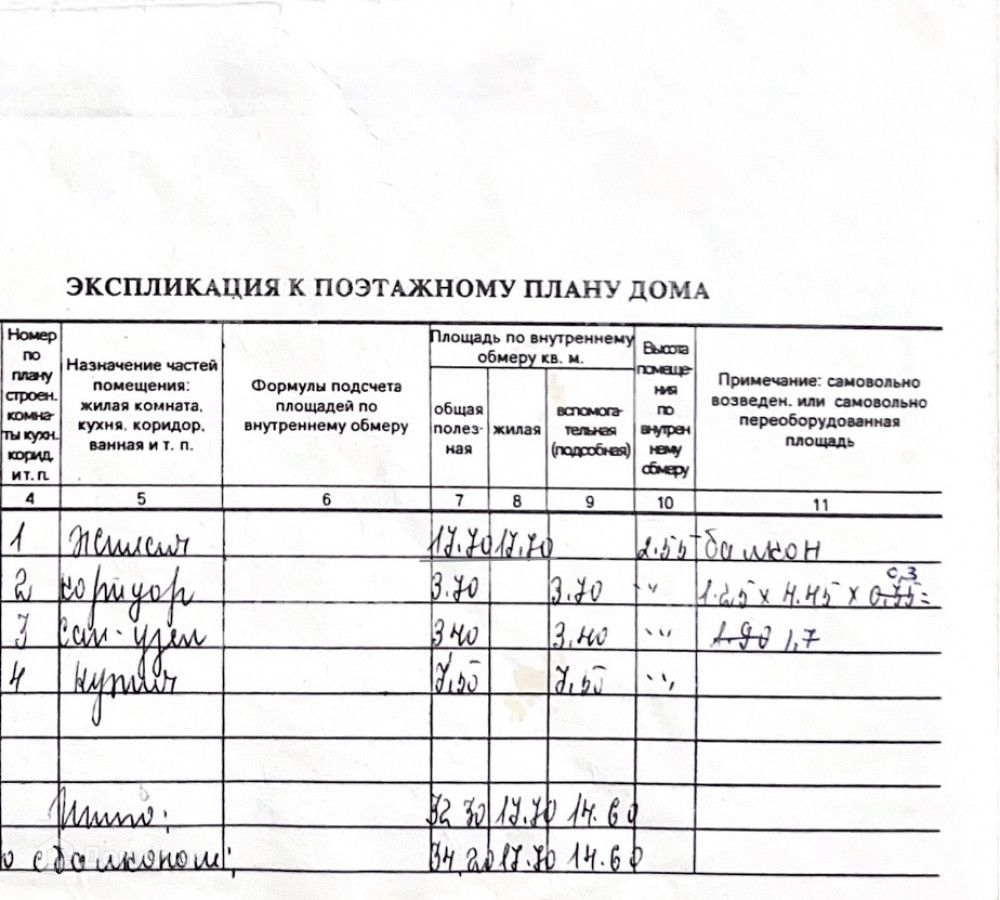 ЭКСПЛИКАЦИЯ К ПОЭТАЖНОМУ ПЛАНУ ДОМА
Номер по плану строен. комна- ты кухн. корид. и т. п.
Назначение частей помещения: жилая комната, кухня, коридор, ванная и т. п.
Формулы подсчета площадей по внутреннему обмеру
Площадь по внутреннему обмеру кв. м.
общая полез- ная
жилая
вспомога- тельная (подсобная)
Высота помеще- ния по внутрен нему обмеру
Примечание: самовольно возведен. или самовольно переоборудованная площадь
4 5 6 7 8 9 10 11
1 жилая 17.70 17.70 2.55 балкон
2 коридор 3.70 3.70 " 1.25 x 4.45 x 0,3 =
3 Сан-узел 3.40 3.40 " 1.90 1,7
4 кухня 7,50 7,50 "
Итого: 32.30 17.70 14.60
о с балконом: 34.20 17.70 14.60